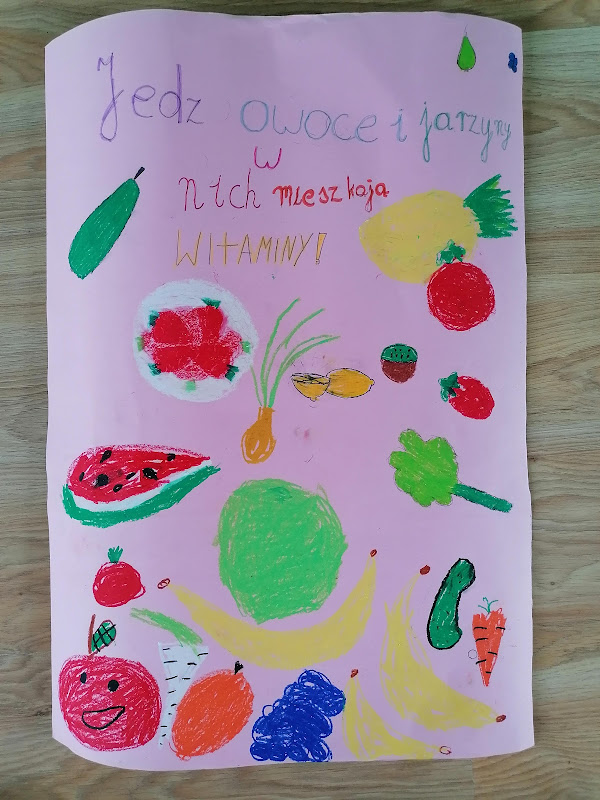 Jedz owoce i jarzyny
w
nich mieszkaja
WITAMINY!